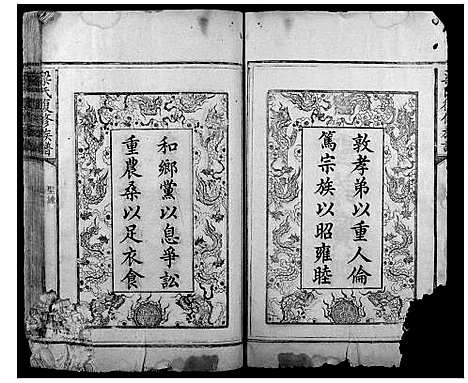 敦孝弟以重人倫
篤宗族以昭雍睦
和鄉黨以息爭訟
重農桑以足衣食
聖諭